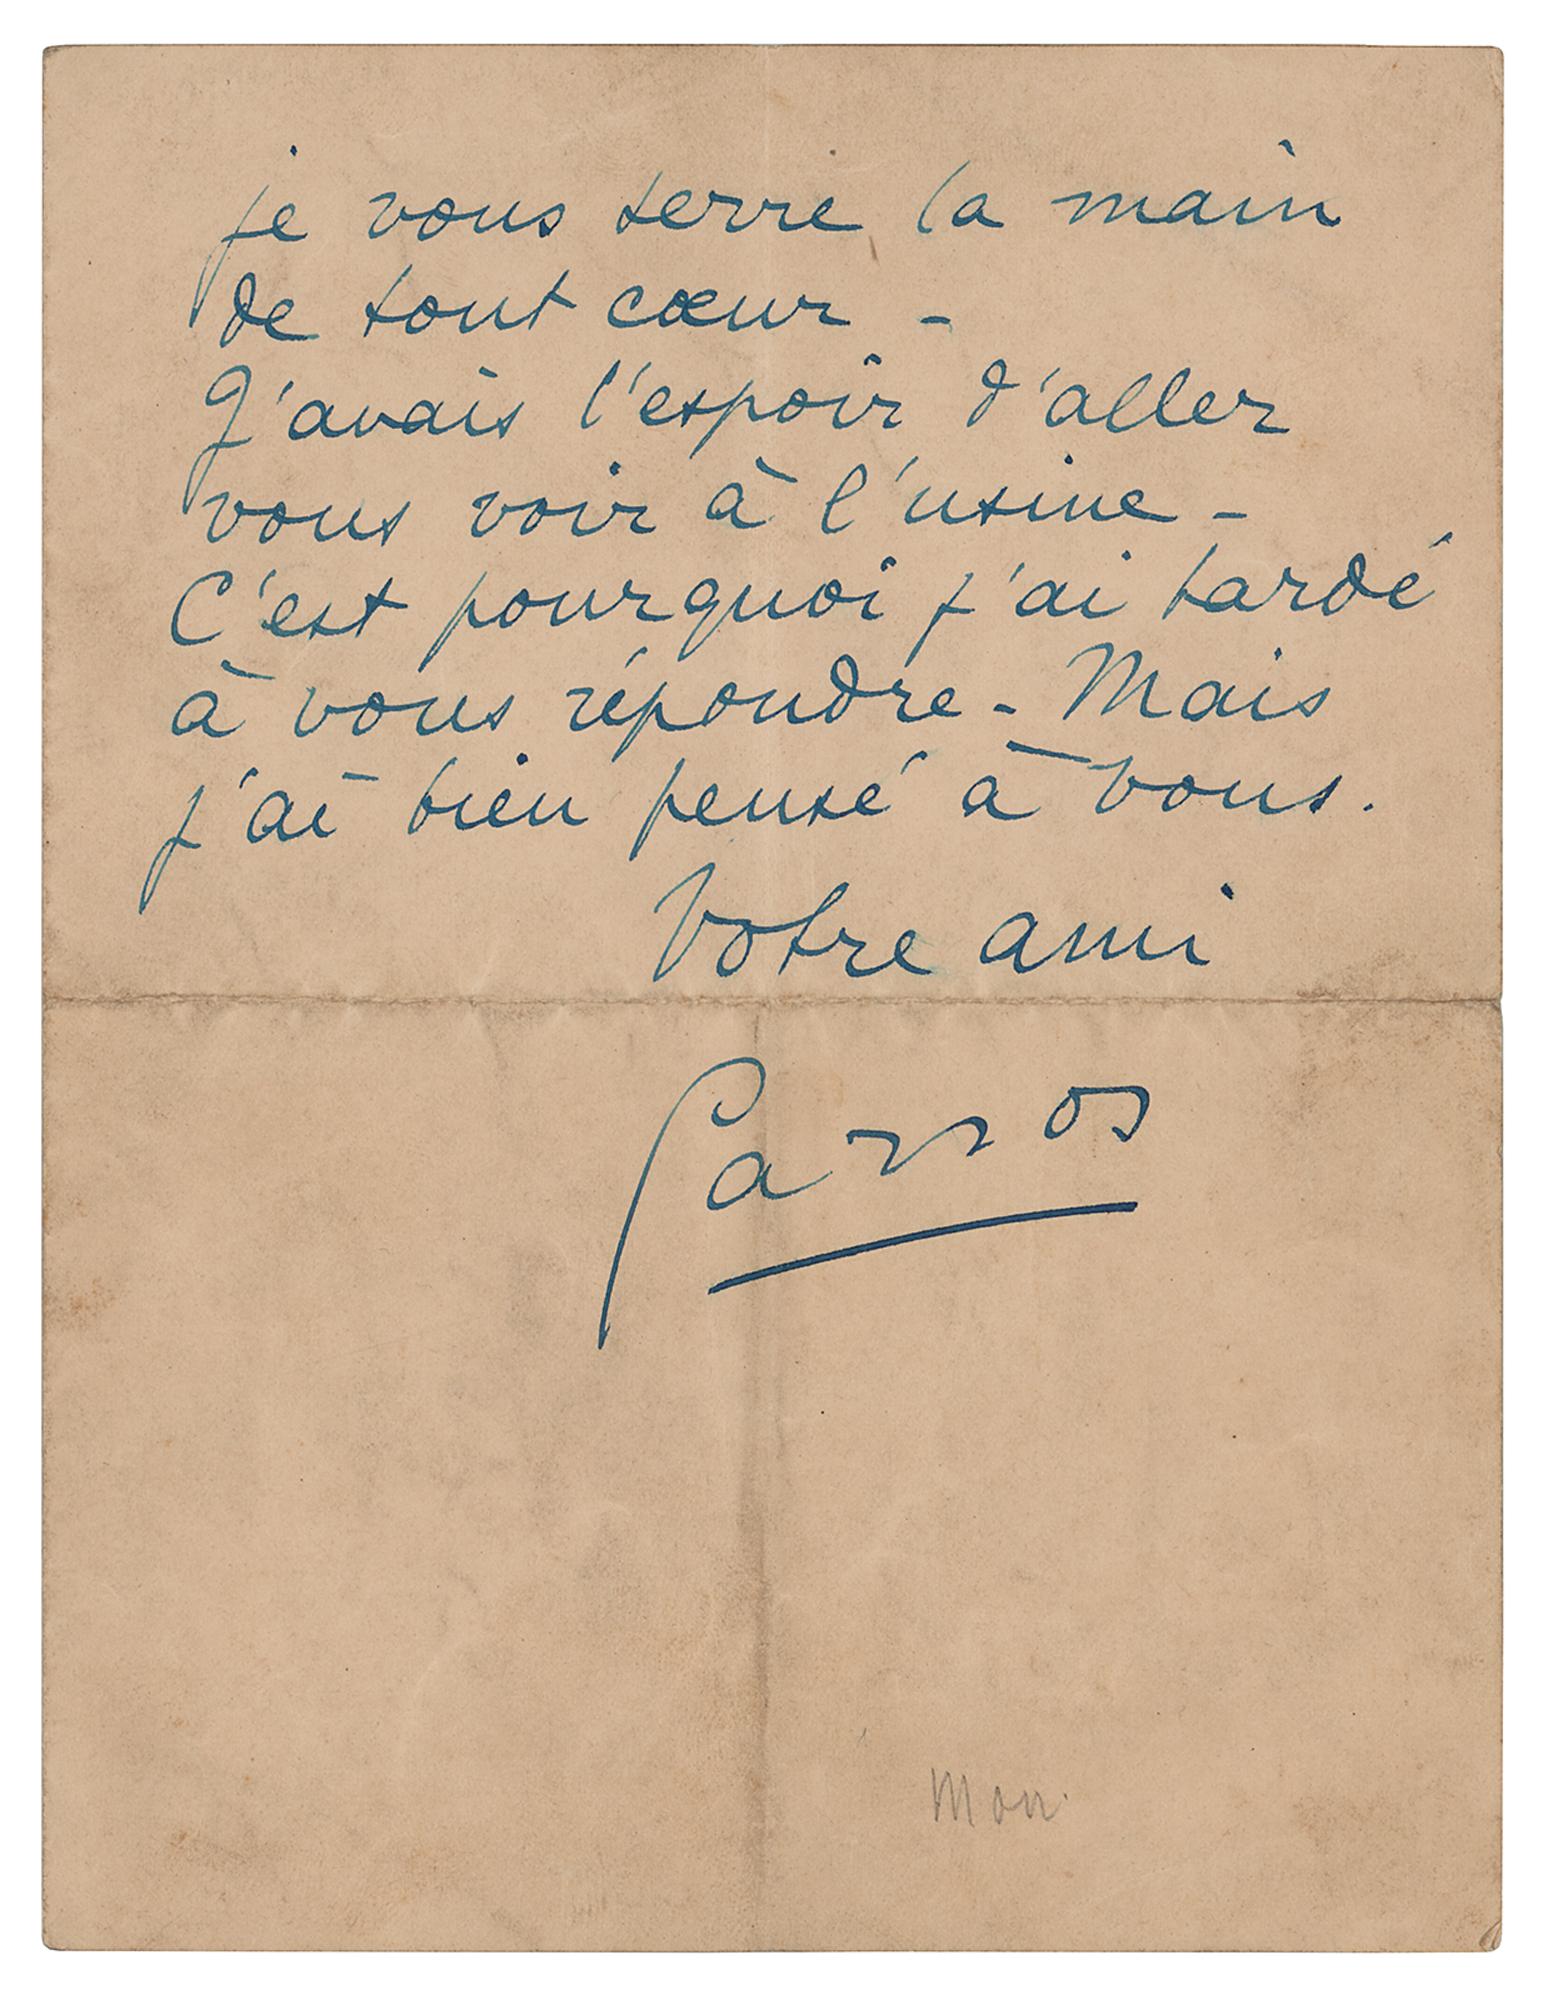 je vous serre la main
de tout cœur -
J'avais l'espoir d'aller
vous voir à l'usine -
C'est pourquoi j'ai tardé
à vous répondre - Mais
j'ai bien pensé à vous.
Votre ami
Garros